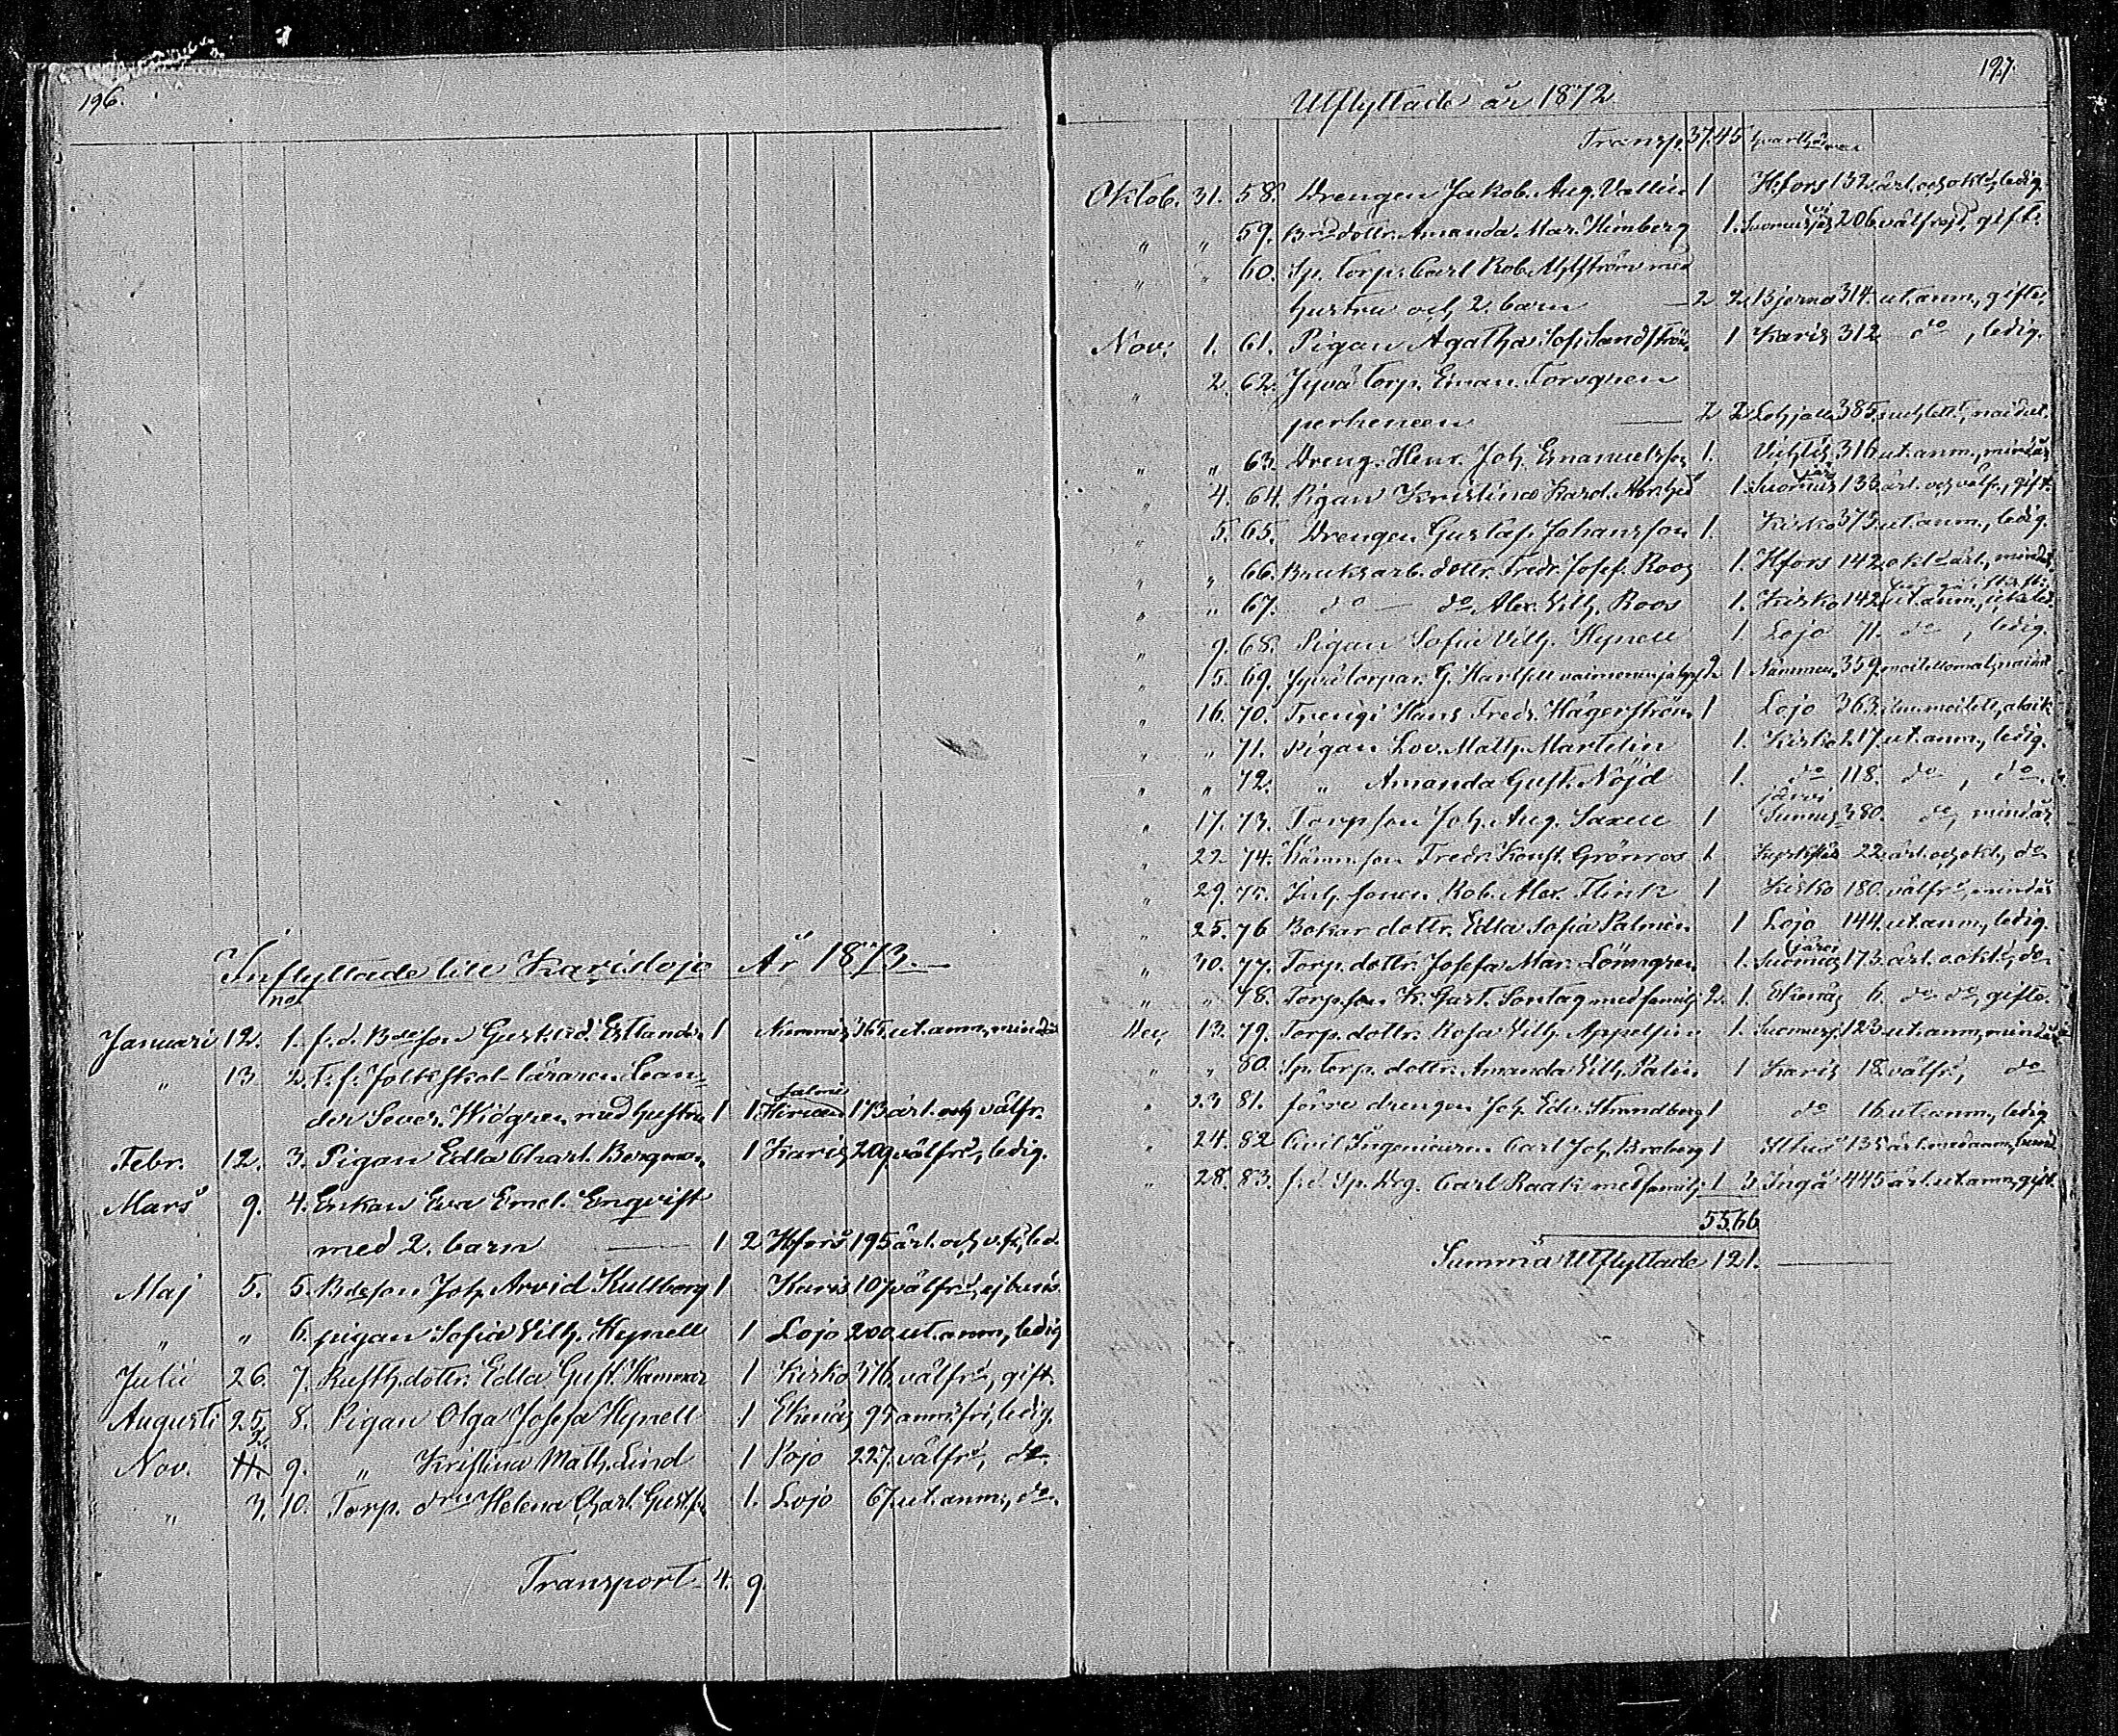 196.
Inflyttade till Karislojo År 1873.
no
Januari 12. 1. f. d. Bdeson Gust. Estlander 1 Nummis 365. ut. anm., mindår
" 13 2. T. f. Folkskol-läraren Lean-
der Sever. Widgren med hustru 1 1. 173 ärl. och välfr.
Febr. 12. 3. Pigan Edla Charl. Bergman 1 Karis 209. välfrd, ledig.
Mars 9. 4. Enkan Eva Emel. Enqvist
med 2. barn — 1 2 Hfors 195 ärl. och v. fr., led.
Maj 5. 5. Bdeson Joh. Arvid Kullberg 1 Karis 107 välfrd, ej
" " 6. pigan Sofia Vilh. Hynell 1 Lojo 200 ut. anm., ledig
Julii 26. 7. Rusth. dottr. Edla Gust. Hammar 1 Kisko 376. välfrd, gift.
Augusti 25. 8. Pigan Olga Josefa Hynell 1 Ekenäs 97 anm. fri, ledig.
2.
Nov. 11. 9. " Kristina Math. Lind 1 Pojo 227. välfrd, do.
" 3. 10. Torp. dtr Helena Charl. Gustfs 1. Lojo 67. ut. anm., do.
Transport 4. 9.
197.
Utflyttade år 1872
Transp. 37. 45
Oktob. 31. 58. Drengen Jakob. Aug. Vallin 1 Hfors 132. ärl. och okl., ledig.
" " 59. Brdottr. Amanda Mar. Himberg 1. Suomusj 206. välfrejd, gift.
" " 60. Sp. Torp. Carl Rob. Ahlström med
hustru och 2. barn — 2 2 Bjerno 314. ut. anm., gifte.
Nov. 1. 61. Pigan Agatha Sof. Sandström 1 Karis 312 do, ledig.
" 2. 62. Jyvä Torp. Eman. Forsgren
perheneen — 2 2 Lohjalle 385. nuhtett., naidut.
" " 63. Dreng. Henr. Joh. Emanuelsson 1. Vichtis 316 ut. anm., mindår
järvi
" 4. 64. Pigan Kristina Karol. 1. Suomus 133 ärl. och välfr., gift.
" 5. 65. Drengen Gustaf Johansson 1. Kisko 373. ut. anm., ledig.
" " 66. Bruksarb. dottr. Fredr. Josef. Roos 1. Hfors 142. okl. ärl., mindår
" " 67. do — do. Alex. Vilh. Roos 1. Kisko 142. ut. anm.,
" 9. 68. Pigan Sofia Vilh. Hynell 1. Lojo 71. do, ledig.
" 15. 69. Jyvä torpar. G. vaimonensa ja 2 1 Nummen 359. moitettomat, naineet
" 16. 70. Trengi Hans Fredr. Hägerström 1 Lojo 363. ilm. moitett.,
" " 71. Pigan Lov. Math. Martelin 1. Kisko 217. ut. anm., ledig.
" " 72. " Amanda Gust. Nöjd 1. do 118. do, do.
järvi
" 17. 73. Torp son Joh. Aug. Saxell 1 Suomus 380. do, mindår
" 22 74. Fredr. Konst. Grönroos 1 22. ärl. och okl., do
" 29. 75. Inh. sonen Rob. Alex. Flink 1 Kisko 180. välfrd, mindår
" 25. 76 Bokar dottr. Edla Sofia Palmén 1 Lojo 144. ut. anm., ledig.
järvi
" 30. 77. Torp. dottr. Josefa Mar. Lönngren 1. Suomus 173. ärl. o. okl., do
" " 78. Torp. son K. Gust. Sontag med familj 2. 1. Ekenäs 6. do do, gifte.
Dec. 13. 79. Torp. dottr. Rosa Vilh. Appelgrén 1. Suomusj. 123 ut. anm., mindår
" " 80. Sp. Torp. dottr. Amanda Vilh. Palin 1 Karis 18. välfrd, do
" 23 81. förre drengen Joh. Edv. Strandberg 1 do 16. ut. anm., ledig
" 24. 82 Civil Ingenieuren Carl Joh. Broberg 1 135 ärl.
" 28. 83. f. d. Sp. Carl Raak med familj. 1 3. Ingå 445 ärl. ut. anm., gift.
55. 66
Summa Utflyttade 121. —